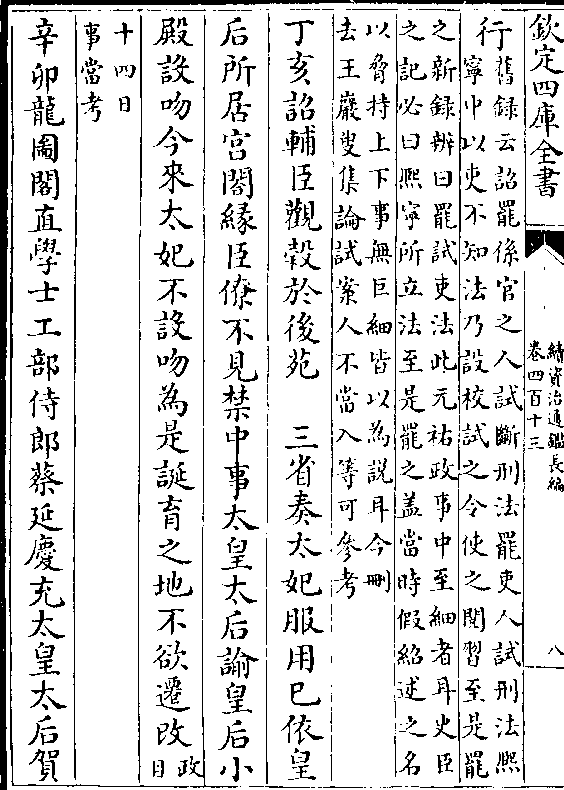 欽定四庫全書
續資治通鑑長編
卷四百十三
八
行
舊録云詔罷係官之人試斷刑法罷吏人試刑法熙
寧中以吏不知法乃設校試之令使之閱習至是罷
之新録辨曰罷試吏法此元祐政事中至細者耳史臣
之記必曰熙寧所立法至是罷之蓋當時假紹述之名
以脅持上下事無巨細皆以為説耳今刪
去王巖叟集論試案人不當入等可參考
丁亥詔輔臣觀穀於後苑　三省奏太妃服用已依皇
后所居宫閣縁臣僚不見禁中事太皇太后諭皇后小
殿設吻今來太妃不設吻為是誕育之地不欲遷改
政目
十四日
事當考
辛卯龍圖閣直學士工部侍郎蔡延慶充太皇太后賀